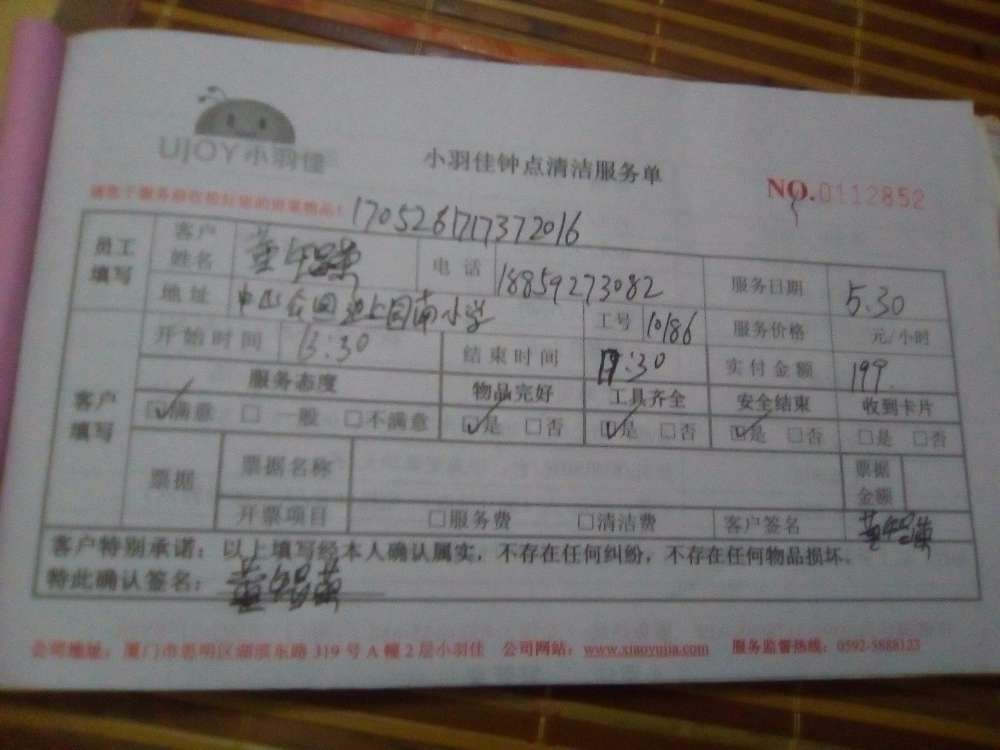 UJOY小羽佳
小羽佳钟点清洁服务单
NO.0112852
1705261717372016
员工填写 客户姓名 电话 18859273082 服务日期 5.30
地址 工号 10186 服务价格 元/小时
客户填写 开始时间 13:30 结束时间 17:30 实付金额 199
服务态度 物品完好 工具齐全 安全结束 收到卡片
☑满意 □一般 □不满意 ☑是 □否 ☑是 □否 ☑是 □否 □是 □否
票据 票据名称 票据金额
开票项目 □服务费 □清洁费 客户签名
客户特别承诺：以上填写经本人确认属实，不存在任何纠纷，不存在任何物品损坏。
特此确认签名：
公司地址：厦门市思明区湖滨东路 319 号 A 幢 2 层小羽佳 公司网站：www.xiaoyujia.com 服务监督热线：0592-5888123